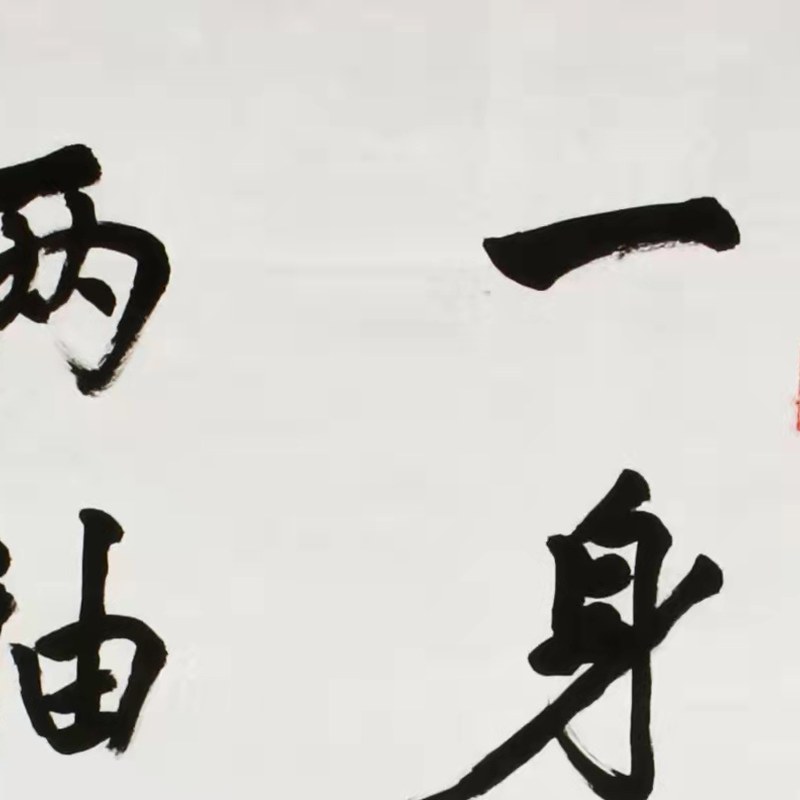 一身
两袖